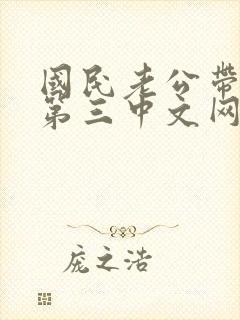 國民老公帶
第三中文网
庞之浩